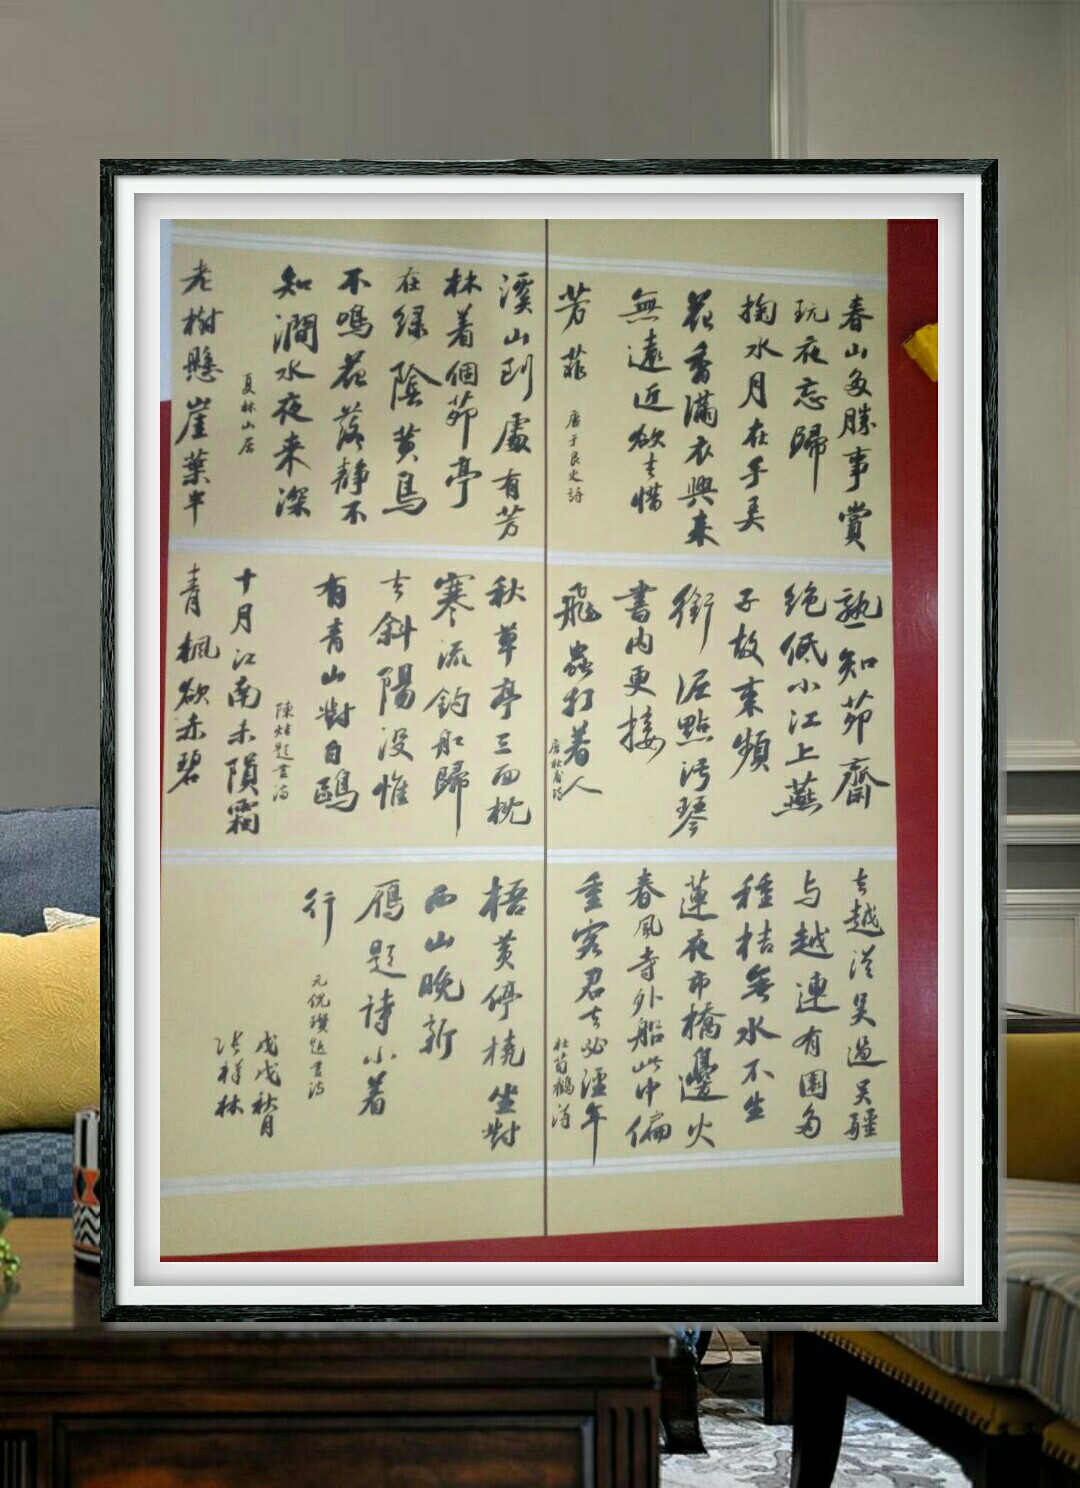 春山多勝事賞
玩夜忘歸
掬水月在手弄
花香滿衣興来
無遠近欲去惜
芳菲
唐于良史詩
熟知茆齋
绝低小江上燕
子故来頻
銜泥點污琴
書内更接
飛蟲打着人
唐杜甫诗
去越從吳過吳疆
与越連有園多
種桔無水不生
蓮夜市橋邊火
春風寺外船此中偏
重客君去必經年
杜荀鶴诗
溪山到處有芳
林着個茆亭
在绿陰黄鳥
不鳴花落静不
知澗水夜来深
夏林山居
老樹懸崖葉半
秋草亭三面枕
寒流釣船歸
去斜陽没惟
有青山對白鷗
題画诗
十月江南未隕霜
青楓欲赤碧
梧黄停橈坐對
西山晚新
雁題詩小着
行
元倪瓚題画诗
戊戌秋月
張祥林